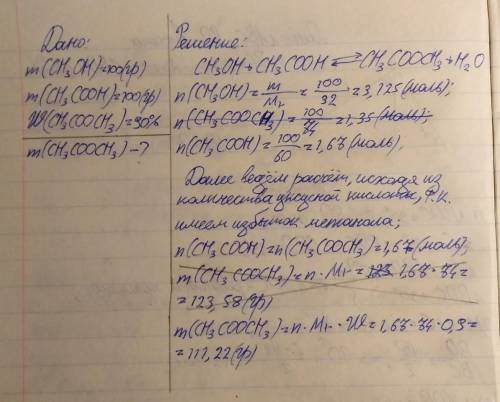 Дано:
m(CH₃OH)=100(гр)
m(CH₃COOH)=100(гр)
W(CH₃COOCH₃)=90%
m(CH₃COOCH₃)-?
Решение:
CH₃OH+CH₃COOH ⇄ CH₃COOCH₃+H₂O
n(CH₃OH)= m/Mr = 100/32 = 3,125(моль);
n(CH₃COOCH₃)= 100/74 = 1,35(моль);
n(CH₃COOH)= 100/60 = 1,67(моль).
Далее ведём расчёт, исходя из
количества уксусной кислоты, т.к.
имеем избыток метанола;
n(CH₃COOH)=n(CH₃COOCH₃)=1,67(моль);
m(CH₃COOCH₃)=n·Mr= 123 1,67·74=
=123,58(гр)
m(CH₃COOCH₃)=n·Mr·W=1,67·74·0,9=
=111,22(гр)